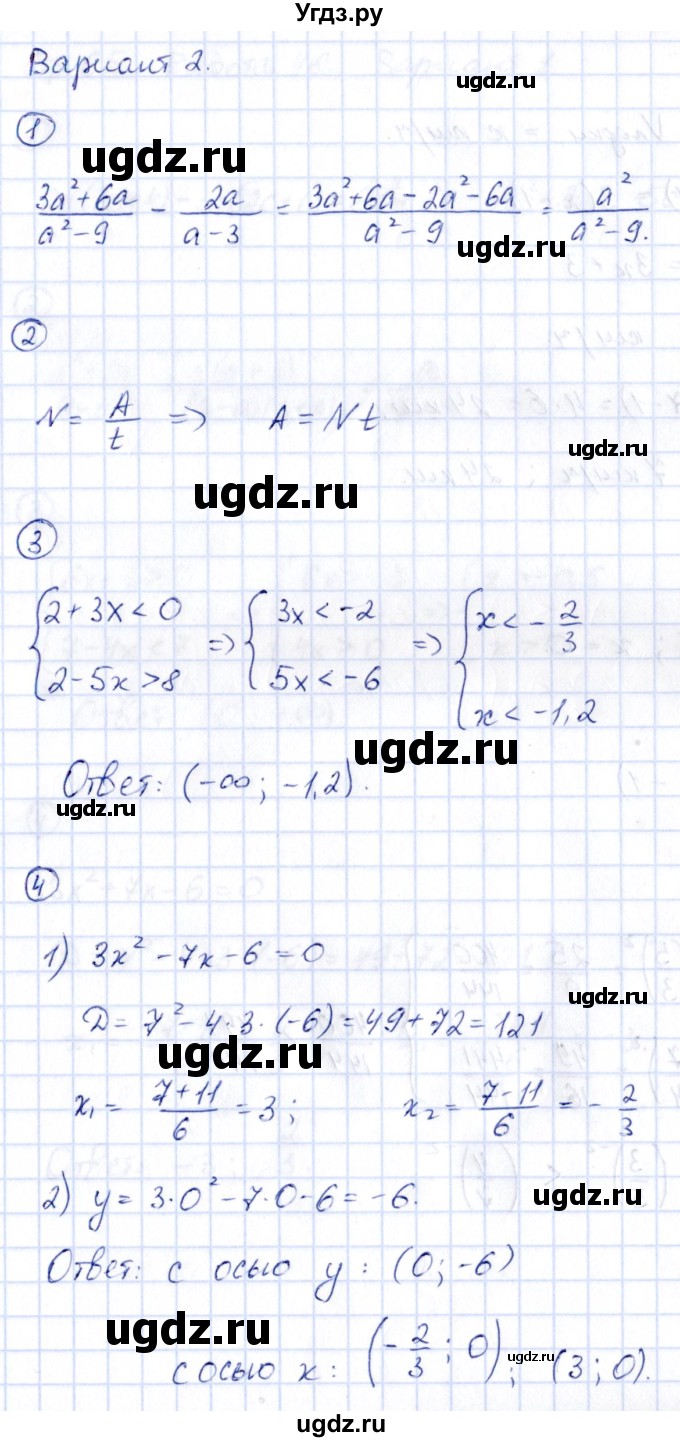 Угдз.ру
Вариант 2.
ugdz.ru
1
ugdz.ru
(3a²+6a)/(a²-9) - 2a/(a-3) = (3a²+6a-2a²-6a)/(a²-9) = a²/(a²-9).
ugdz.ru
2
N = A/t => A = Nt.
ugdz.ru
ugdz.ru
3
{2+3x<0 => {3x<-2 => {x<-2/3
{2-5x>8 {5x<-6 {x<-1,2
ugdz.ru
Ответ: (-∞; -1,2).
ugdz.ru
4
1) 3x²-7x-6=0
ugdz.ru
D=7²-4·3·(-6)=49+72=121
ugdz.ru
x₁=(7+11)/6=3; x₂=(7-11)/6=-2/3
2) y=3·0²-7·0-6=-6.
ugdz.ru
Ответ: с осью y: (0; -6)
ugdz.ru
с осью x: (-2/3; 0); (3; 0).
ugdz.ru
ugdz.ru